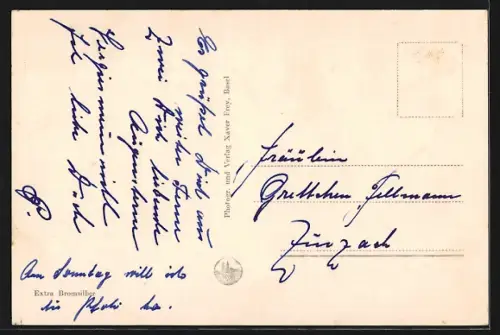 Es grüßet Dich nur
weiter Denn
Zwei Dich liebende
Äugenlein
Vergissmeinnicht
Ich liebe Dich
P.
Am Sonntag will ich
die Photo ha.
Extra Bromsilber
Photogr. und Verlag Xaver Frey, Basel
Fräulein
Grettchen Fellmann
Zurzach